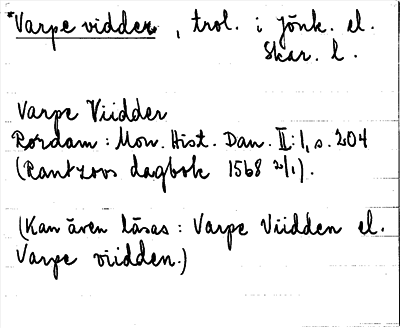 *Varpe vidder, trol. i Jönk. el.
Skar. l.
Varpe Viidder
Rördam: Mon. Hist. Dan. II:1, s. 204
(Rantzovs dagbok 1568 2/1).
(Kan även läsas: Varpe Viidden el.
Varpe viidden.)